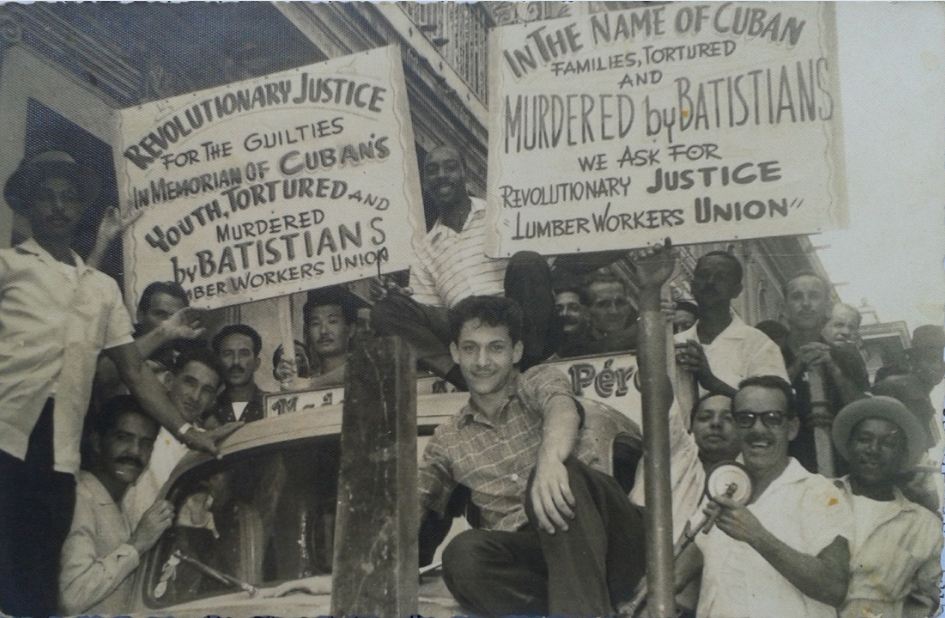 REVOLUTIONARY JUSTICE
FOR THE GUILTIES
IN MEMORIAN OF CUBAN'S
YOUTH, TORTURED AND
MURDERED
by BATISTIANS
MBER WORKERS UNION
IN THE NAME OF CUBAN
FAMILIES, TORTURED
AND
MURDERED by BATISTIANS
WE ASK FOR
REVOLUTIONARY JUSTICE
"LUMBER WORKERS UNION"
Pér